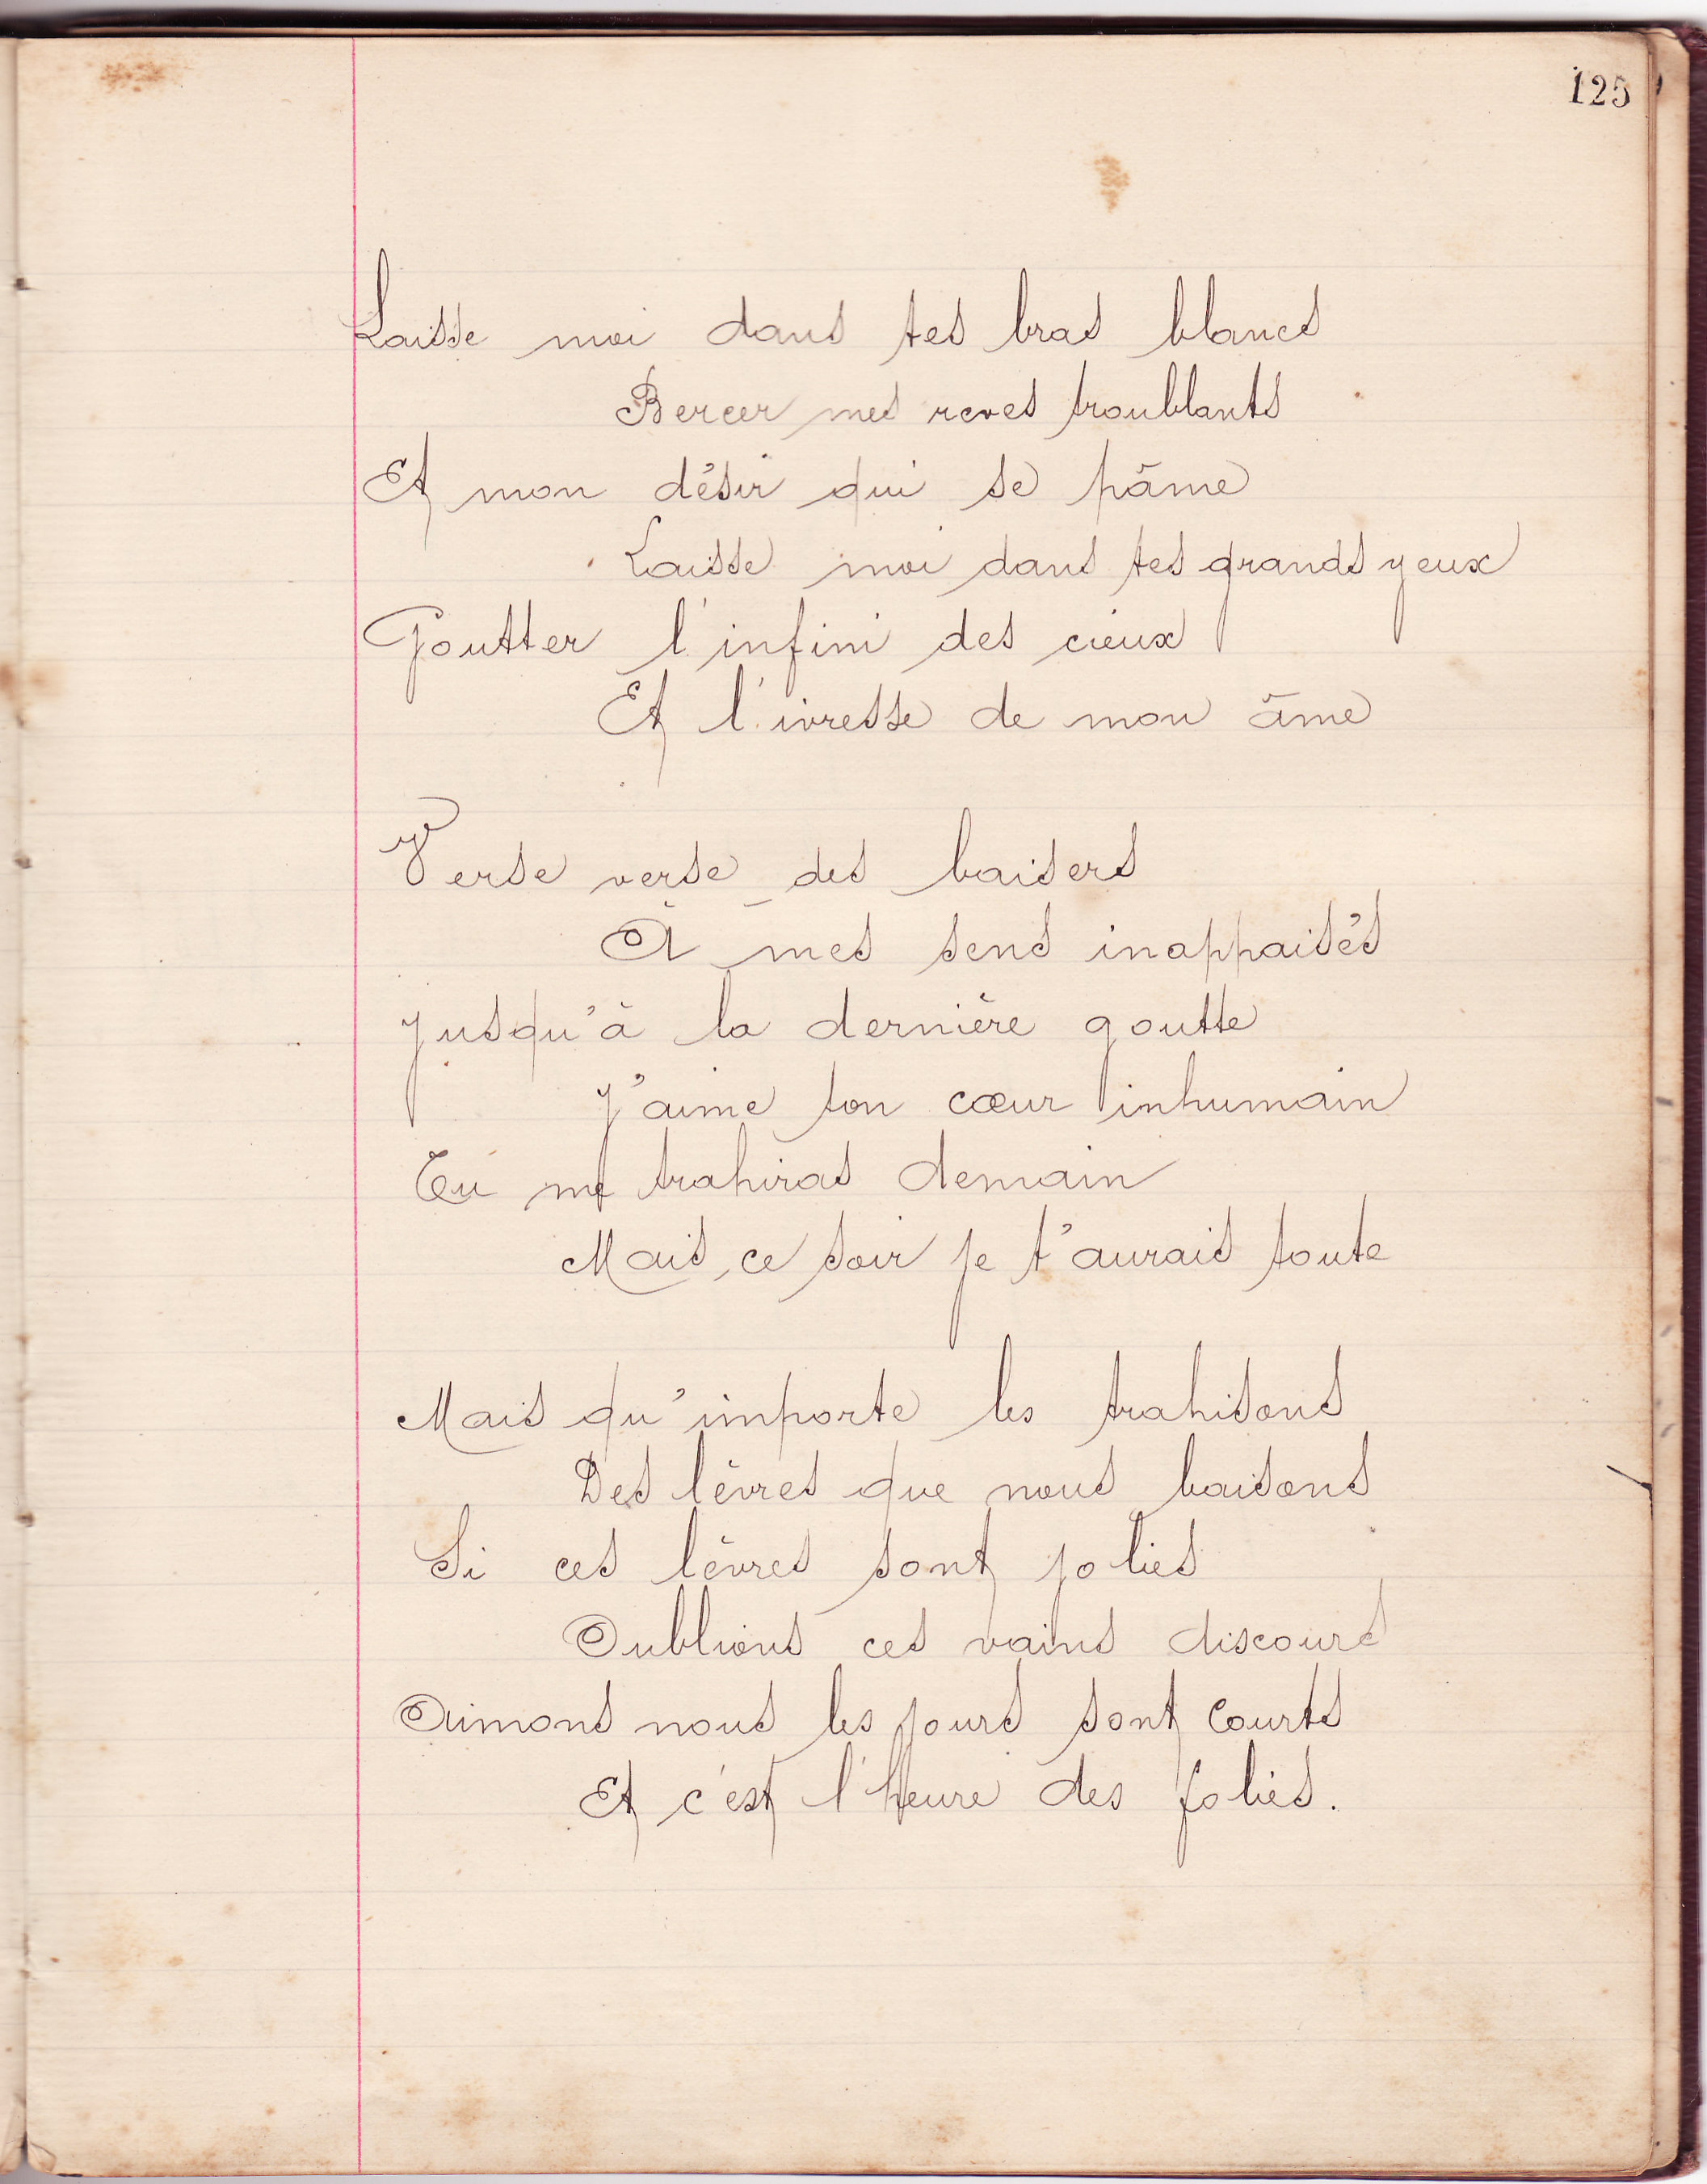 125
Laisse moi dans tes bras blancs
Bercer mes reves troublants
Et mon désir qui se pâme
Laisse moi dans tes grands yeux
Goutter l'infini des cieux
Et l'ivresse de mon âme
Verse verse des baisers
À mes sens inappaisés
Jusqu'à la dernière goutte
J'aime ton cœur inhumain
Tu me trahiras demain
Mais ce soir je t'aurais toute
Mais qu'importe les trahisons
Des lèvres que nous baisons
Si ces lèvres sont jolies
Oublions ces vains discours
Aimons nous les jours sont courts
Et c'est l'heure des folies.